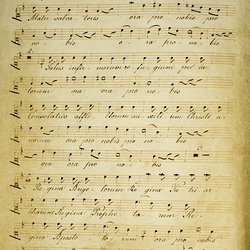 Mater Salvatoris ora pro nobis pro
no bis o ra pro no bis
Salus infirmorum refugium pec ca
torum ora pro no bis
Consolatrix afflic torum auxili um Christi a
norum ora pro nobis no bis
ora pro no bis
Re gina Ange lorum Re gina
Regina Prophe ta rum Re
gina Aposto lo rum ora pro no bis